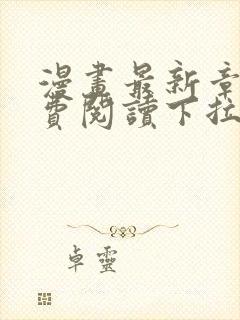 漫畫最新章
費閱讀下拉
卓靈